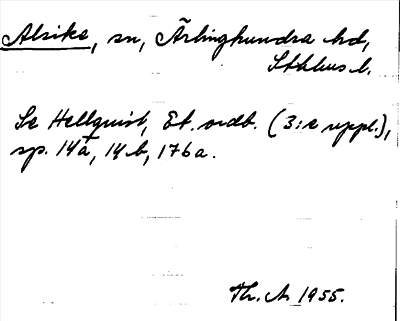 Alsike, sn, Ärlinghundra hd,
Sthlms l.
Se Hellquist, Et. ordb. (3:e uppl.),
sp. 14a, 14b, 176a.
Th. A. 1955.